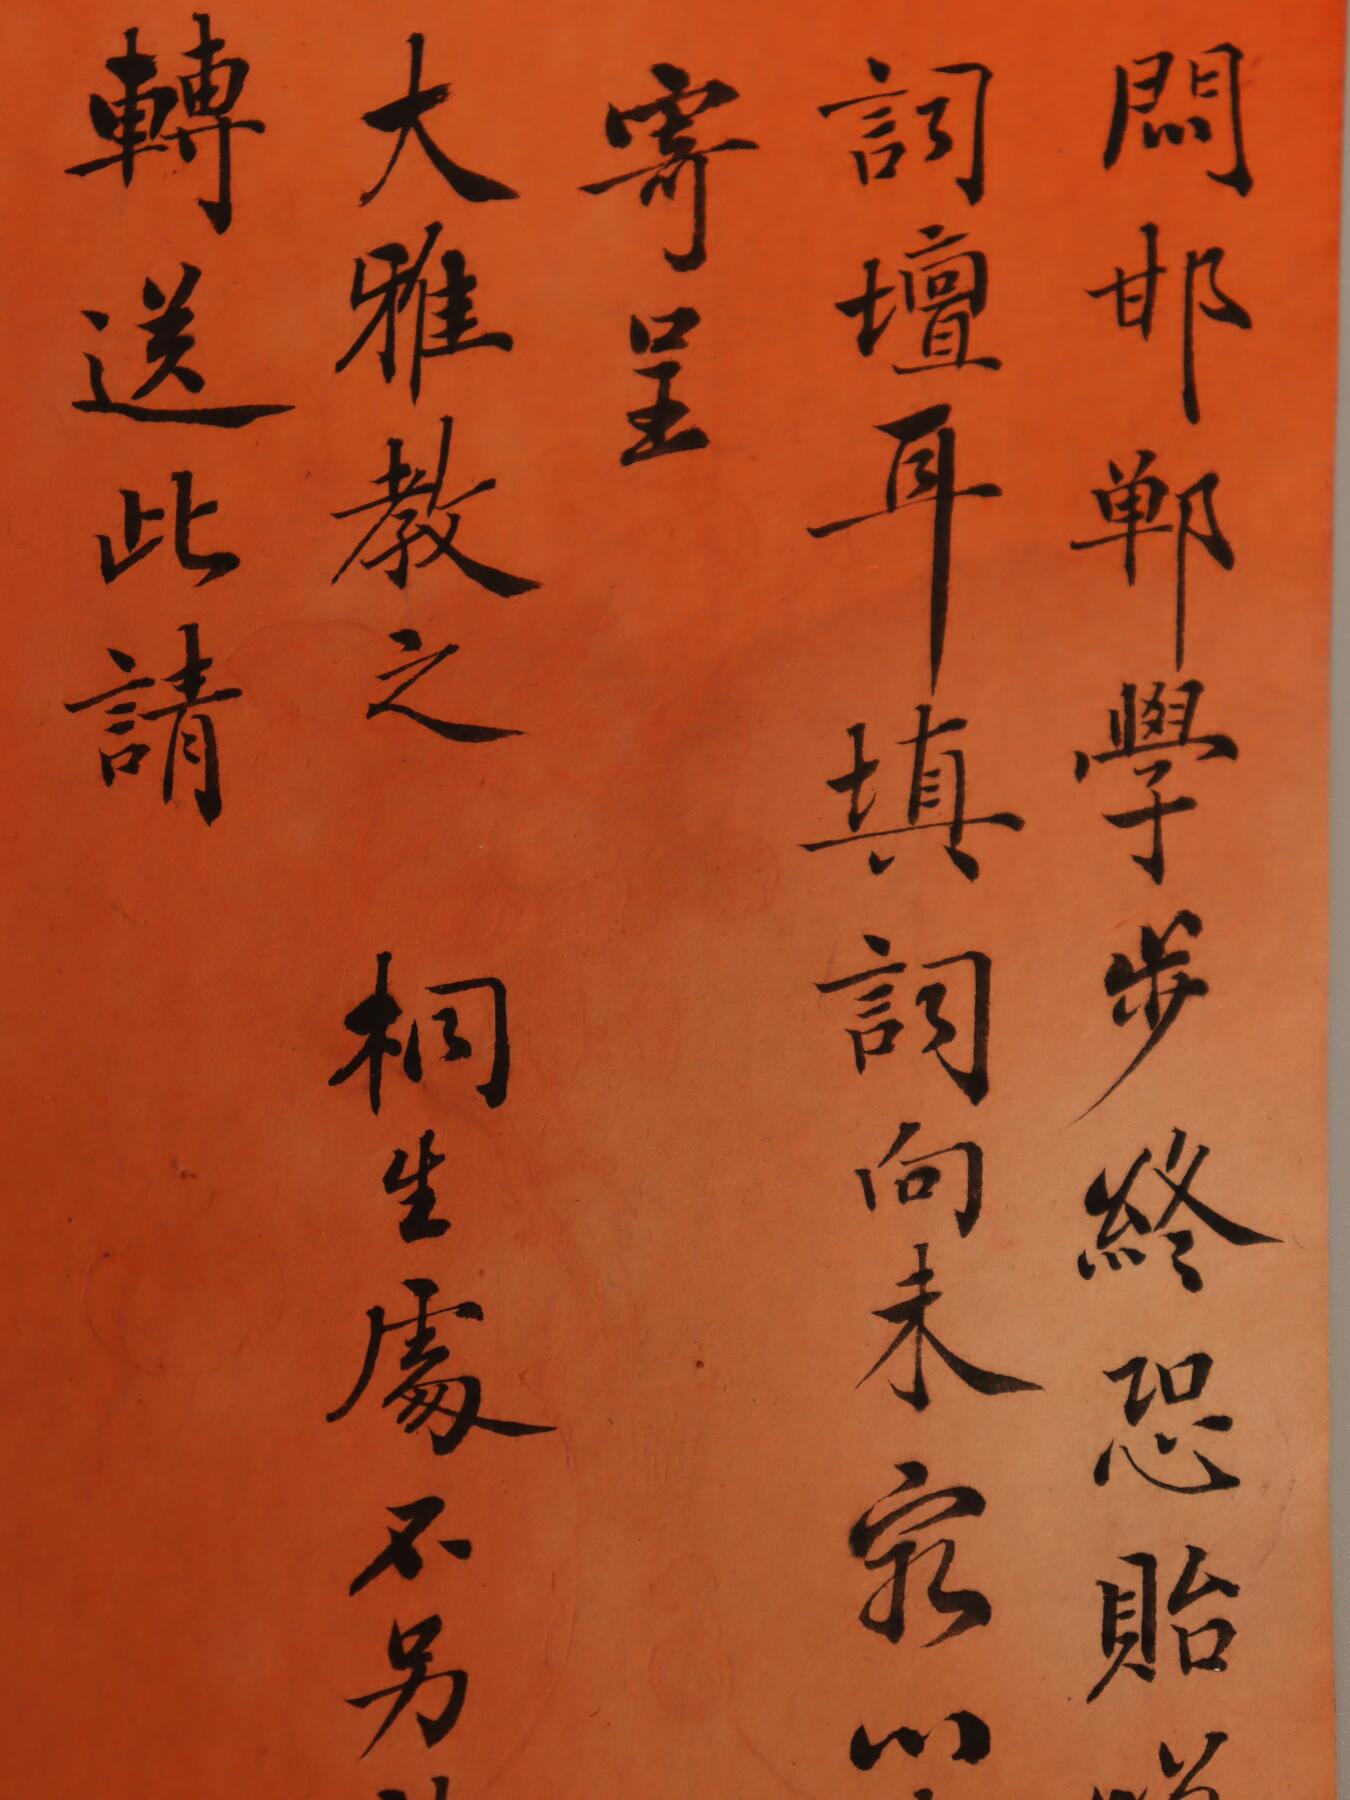 邯鄲學步終恐貽
詞壇耳填詞向未
寄呈
大雅教之 桐生處不另
轉送此請